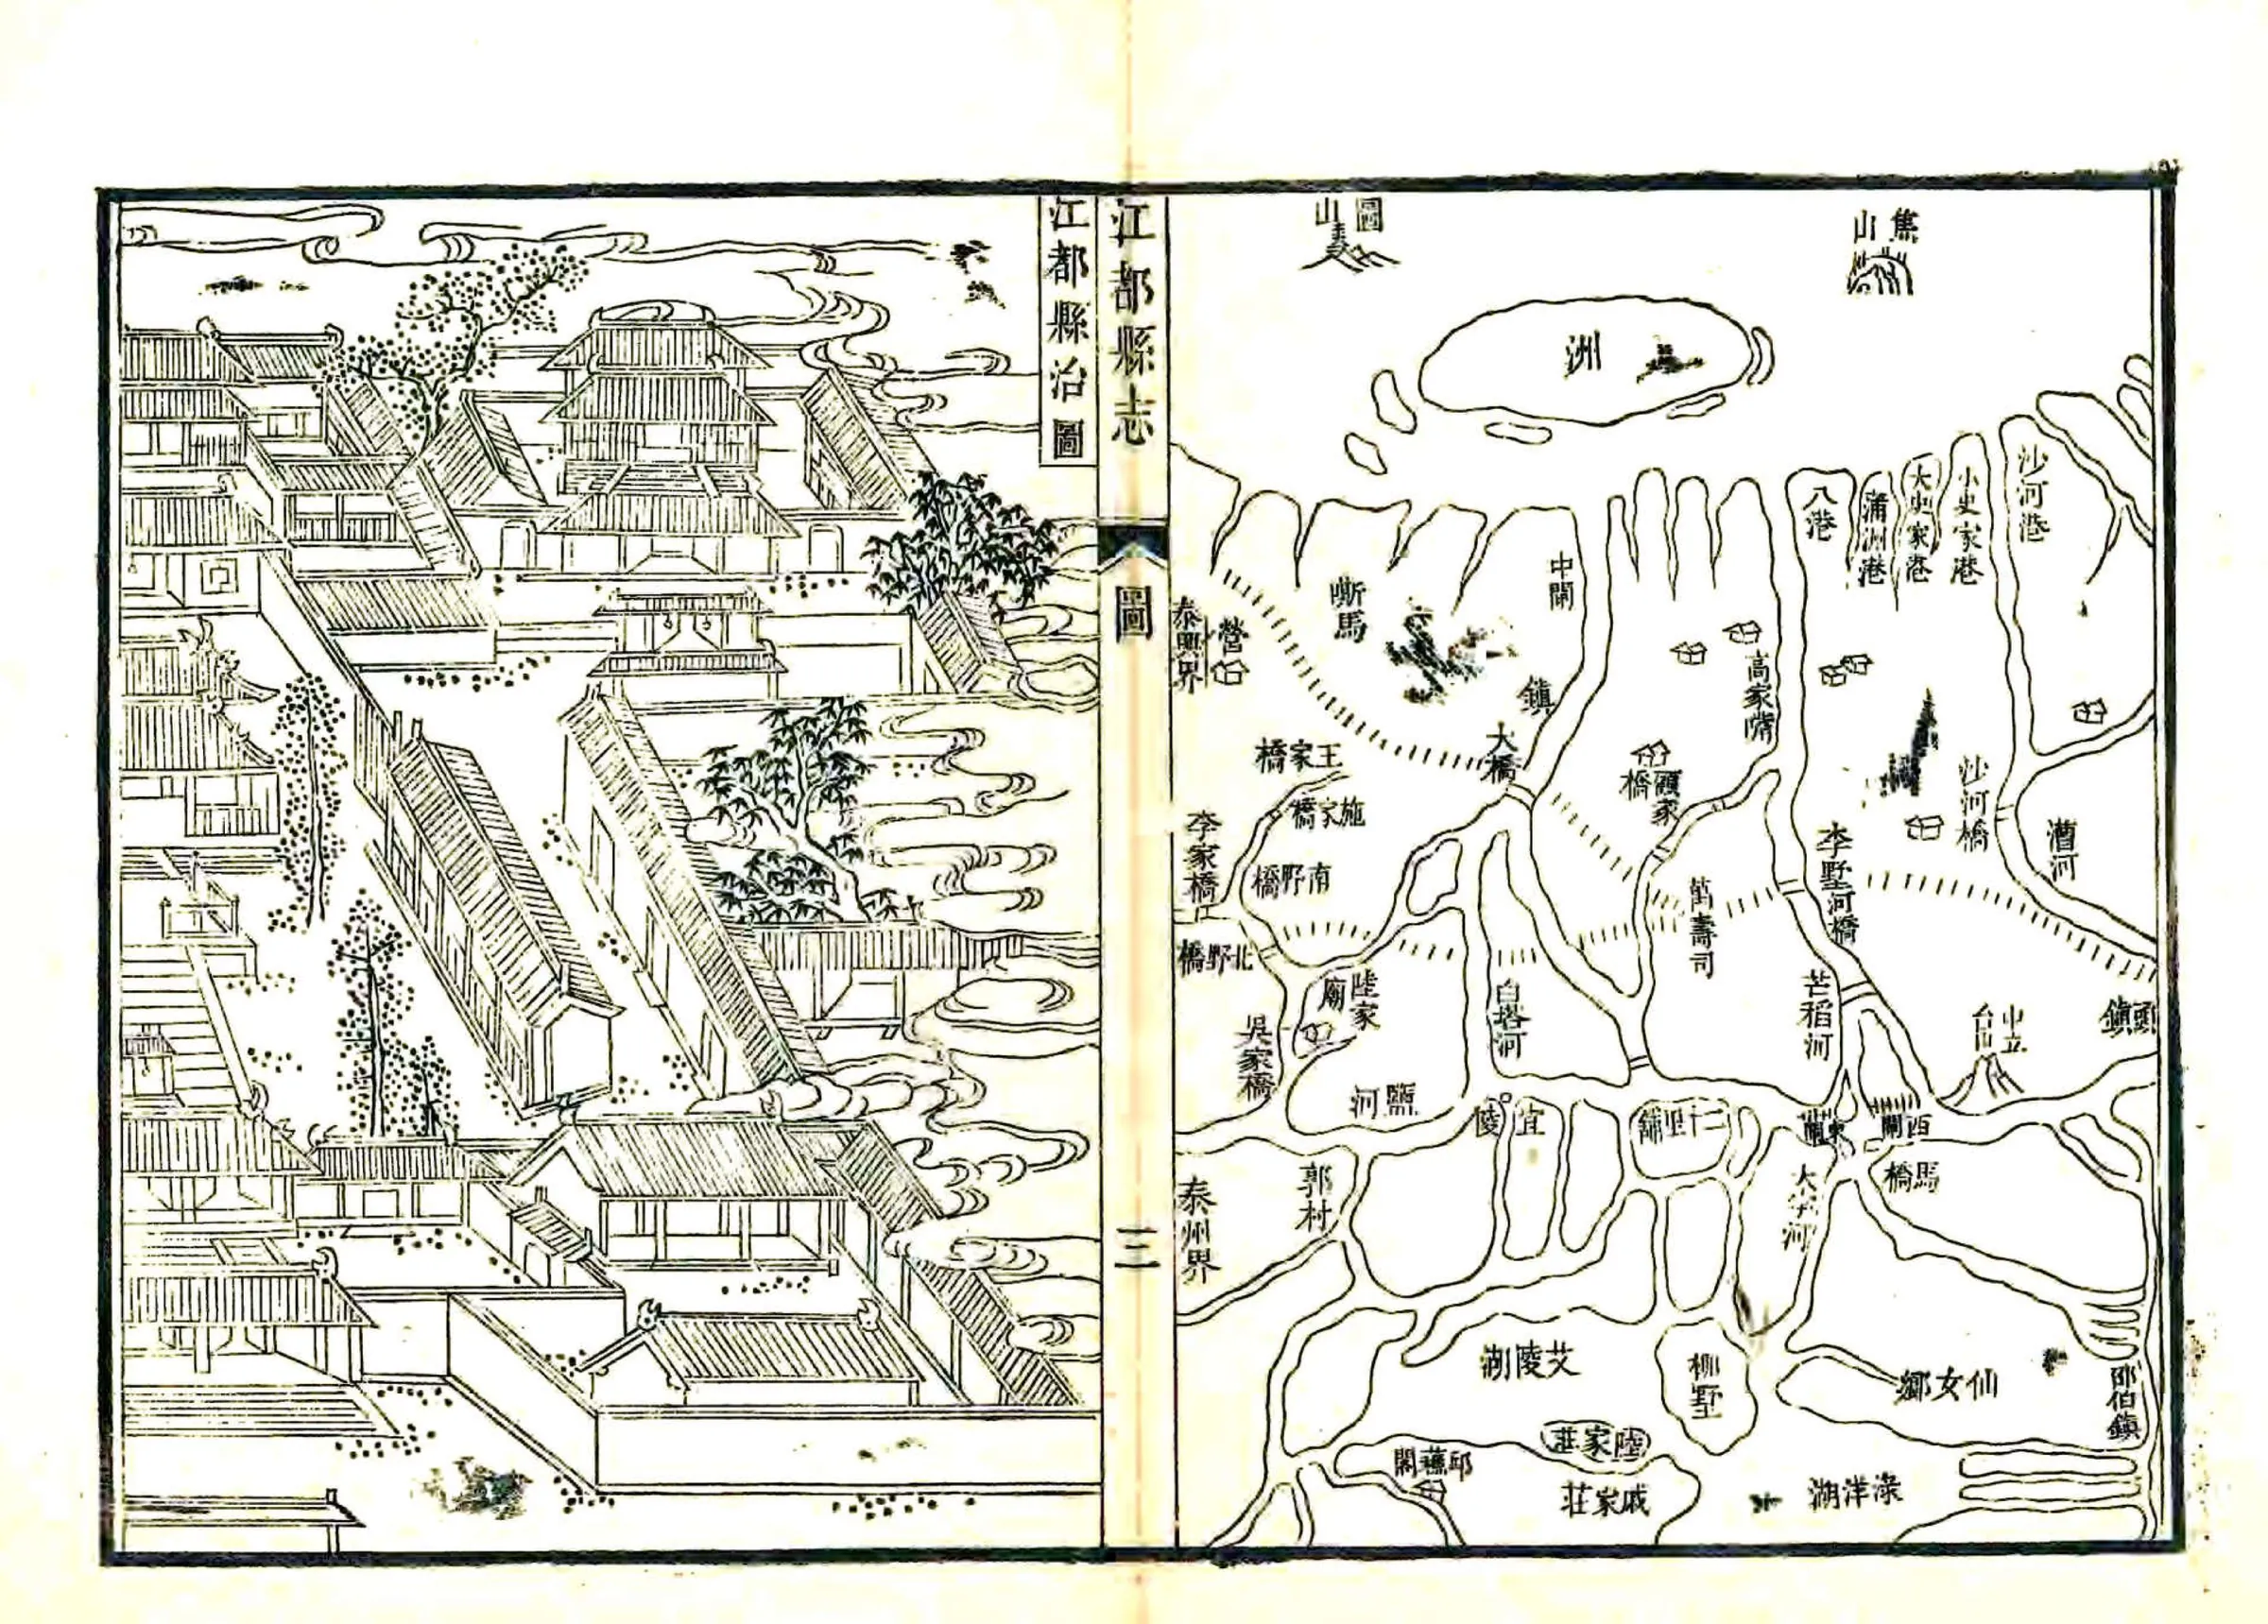 焦山
圌山
洲
沙河港
小史家港
大史家港
蒲洲港
八港
中閘
嘶馬
鎮
大橋
營
泰興界
高家嘴
顧家橋
沙河橋
漕河
李墅河橋
萬壽司
王家橋
施家橋
李家橋
南野橋
北野橋
陸家廟
吳家橋
白塔河
芒稻河
鹽河
宜陵
二十里舖
東閘
西閘
馬橋
郭村
泰州界
艾陵湖
柳墅
仙女鄉
邵伯鎮
陸家莊
戚家莊
淥洋湖
江都縣志
圖
三
江都縣治圖